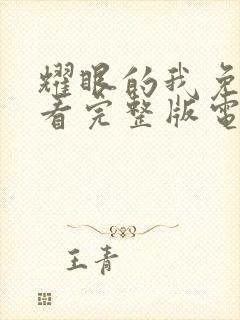 耀眼的我免
看完整版電
王青